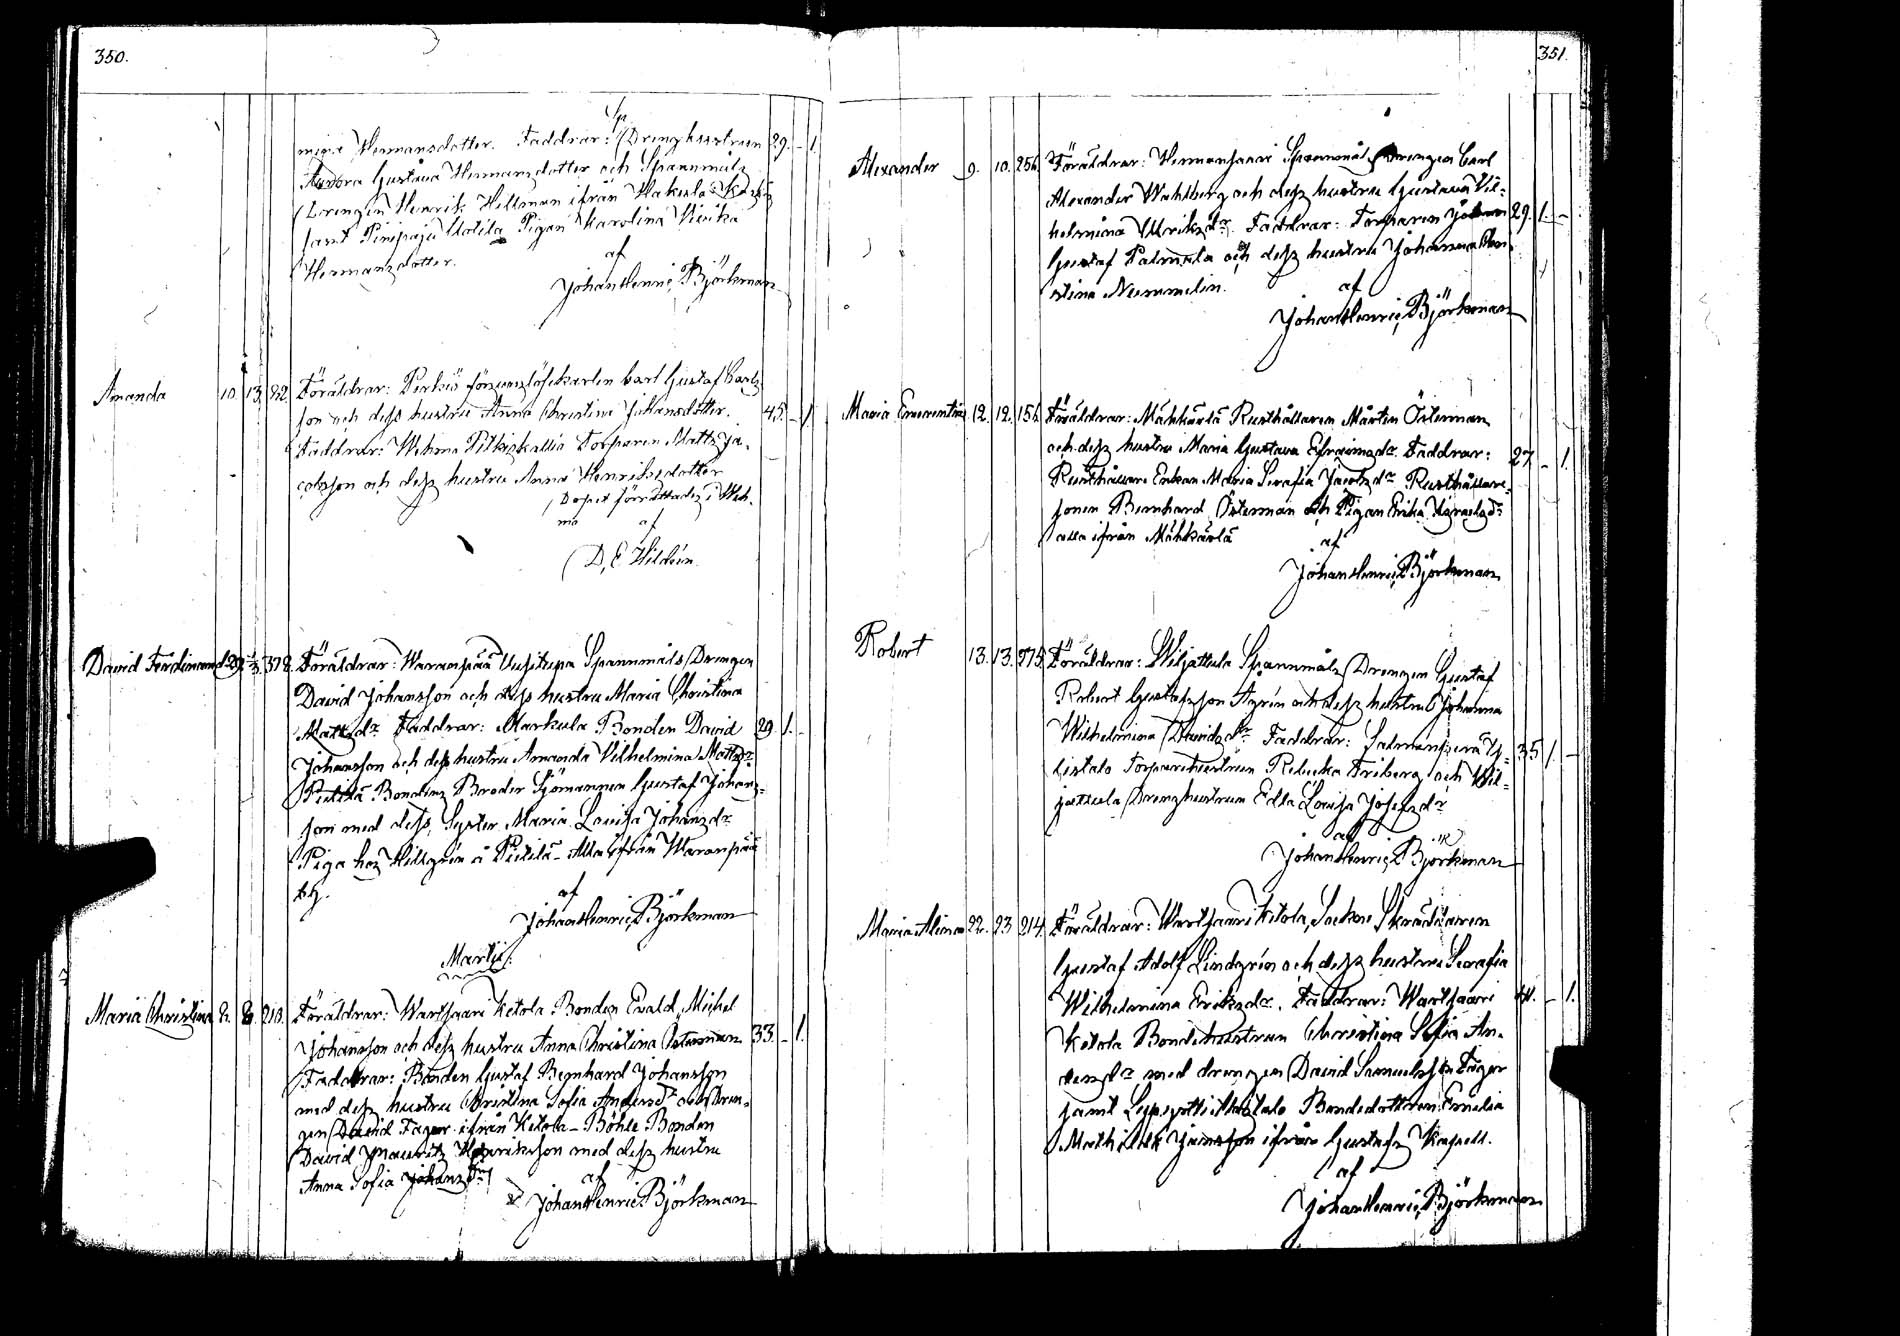 350.
Sp
mina Hermansdotter. Faddrar: Drenghustrun 29. - 1.
Aurora Gustava Hermanzdotter och Spannmåls
Drengen Henrik Hellman ifrån Hakula
samt Pinipaju Uotila Pigan Karolina Vivika
Hermanzdotter.
af
Johan Henric Björkman
Amanda 10. 13. 92. Föräldrar: Perkiö försvarslöskarlen Carl Gustaf Carls
son och dess hustru Anna Christina Johansdotter. 45. - 1
Faddrar: Wehmo Pitkiskallio Torparen Matts Ja-
cobsson och dess hustru Anna Henriksdotter
Dopet förrättades i Weh-
mo af
D. E. Hildén.
David Ferdinand 378. Föräldrar: Waranpää Uusitupa Spannmåls Drengen
David Johansson och dess hustru Maria Christina
Mattsdr Faddrar: Markula Bonden David 29 1. -
Johansson och dess hustru Amanda Vilhelmina Mattsdr
Pietilä Bondens Broder Sjömannen Gustaf Johans-
son med dess Syster Maria Lovisa Johanzdr
Piga hos Hillgrén å Pietilä - Alla ifrån Waranpää
by.
af
Johan Henric Björkman
Martii.
Maria Christina 2. 8. 218. Föräldrar: Wartsaari Ketola Bonden Evald Michel
Johansson och dess hustru Anna Christina Österman 33. - 1.
Faddrar: Bonden Gustaf Bernhard Johansson
med dess hustru Christina Sofia Andersdr och Dren-
gen David Fager ifrån Ketola - Böhle Bonden
David Mauritz Henriksson med dess hustru
Anna Sofia Johanzdr
af
Johan Henric Björkman
351.
Alexander 9. 10. 256. Föräldrar: Hermansaari Spannmåls Drengen Carl
Alexander Wahlberg och dess hustru Gustava Vil-
helmina Ulriksdr. Faddrar: Torparen Johan 29. 1. -
Gustaf Palmula och dess hustru Johanna Chri-
stina Nummelin.
af
Johan Henric Björkman
Maria Emerentia 12. 12. 156. Föräldrar: Mähkärlä Rusthållaren Mårten Österman
och dess hustru Maria Gustava Efraimsdr. Faddrar: 27 - 1.
Rusthållare Enkan Maria Serafia Jacobsdr Rusthållare-
sonen Bernhard Österman och Pigan Erika Israelsdr
alla ifrån Mähkärlä
af
Johan Henric Björkman
Robert 13. 13. 275. Föräldrar: Wiljattula Spannmåls Drengen Gustaf
Robert Gustafsson Ågrén och dess hustru Johanna
Wilhelmina Davidsdr Faddrar: Salmenperä Y- 35 1. -
listalo Torparehustrun Rebecka Friberg och Wil-
jattula Drenghustrun Edla Lovisa Josefsdr
af
Johan Henric Björkman
Maria Alina 22. 23 214. Föräldrar: Wartsaari Ketola, Socken Skräddaren
Gustaf Adolf Lindgrén och dess hustru Serafia
Wilhelmina Eriksdr. Faddrar: Wartsaari 44. - 1.
Ketola Bondehustrun Christina Sofia An-
dersdr med drengen David Samuelsson Fager
samt Leppotti Alastalo Bondedottren Emelia
Mathilda Jansson ifrån Gustafs Kapell.
af
Johan Henric Björkman